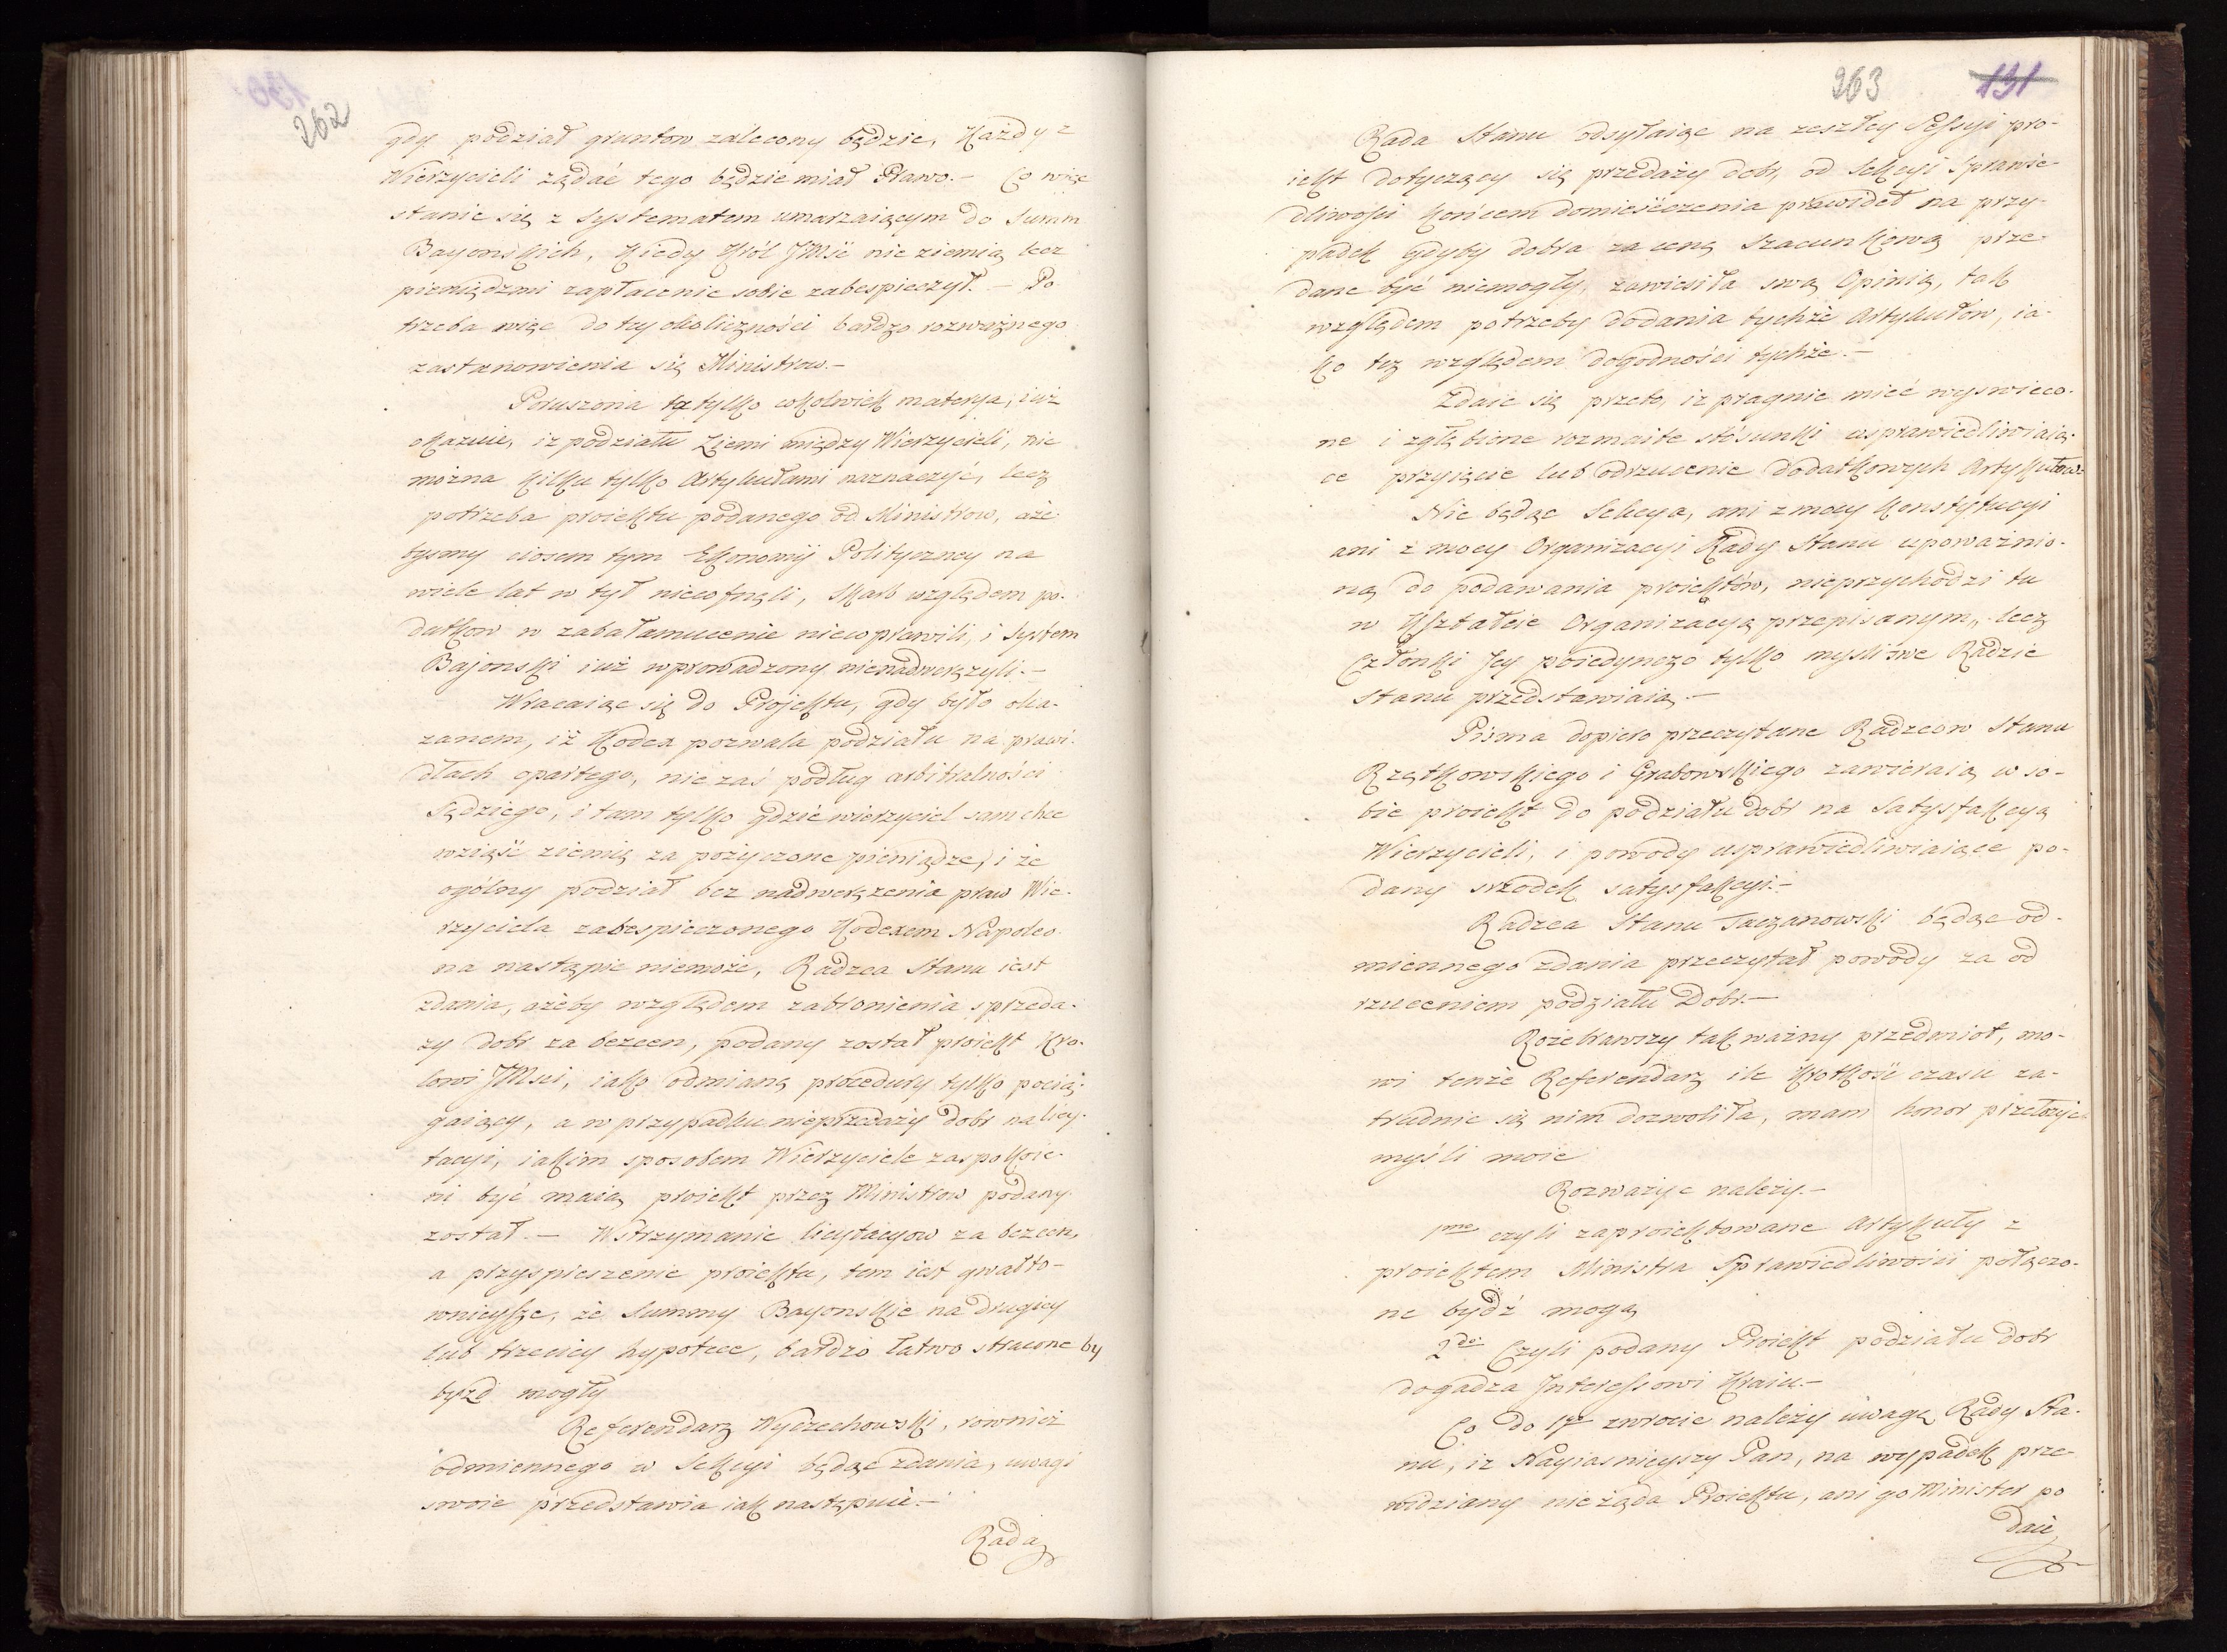 262
gdy podział gruntow zalecony będzie, Każdy z
Wierzycieli żądać tego będzie miał Prawo.— Co więc
stanie się z Systematem umarzaiącym do Summ
Bayonskich, Kiedy Król JMść nie ziemią lecz
pieniędzmi zapłacenie sobie zabespieczył.— Po
trzeba więc do tey okoliczności bardzo rozważnego
zastanowienia się Ministrow.—
Poruszona ta tylko cokolwiek materya, iuż
okazuie, iż podziału Ziemi między Wierzycieli, nie
można kilku tylko Artykułami naznaczyć, lecz
potrzeba proiektu podanego od Ministrow, aże
bysmy ciosem tym Ekonomij Polityczney na
wiele lat w tył niecofnęli, Skarb względem po-
datkow w zabałamucenie niewprawili, i System
Bajonski iuż wprowadzony nienadwerężyli.—
Wracaiąc się do Projektu, gdy było oka-
zanem, iż Kodex pozwala podziału na prawi-
dłach opartego, nie zaś podług arbitralności
Sędziego, i tam tylko gdzie wierzyciel sam chce
wziąść ziemię za pożyczone pieniądze, i że
ogólny podział bez nadwerężenia praw Wie-
rzyciela zabespieczonego Kodexem Napoleo-
na nastąpic niemoże, Radzca Stanu iest
zdania, ażeby względem zabronienia sprzeda-
ży dobr za bezcen, podany został proiekt Kro-
lowi JMsci, iako odmianę procedury tylko pocią-
gaiący, a w przypadku nieprzedaży dobr na licy-
tacyi, iakim sposobem Wierzyciele zaspokoie-
ni być maią proiekt przez Ministrow podany
został.— Wstrzymanie licytacyow za bezcen,
a przyspieszenie proiektu, tem iest gwałto-
wnieysze, że Summy Bayonskie na drugiey
lub trzeciey hypotece, bardzo łatwo stracone by
bydź mogły
Referendarz Wyczechowski, rownież
odmiennego w Sekcyi będąc zdania, uwagi
swoie przedstawia iak następuie.—
Rada
263 131
Rada Stanu odsyłaiąc na zeszłey Sessyi pro-
iekt dotyczący się przedaży dobr, od Sekcyi Sprawie-
dliwości końcem domieśczenia prawideł na przy-
padek gdyby dobra za cenę szacunkową prze-
dane być niemogły, zawiesiła swą Opinię, tak
względem potrzeby dodania tychże Artykułow, ia-
ko też względem dogodności tychże.—
Zdaie się przeto, iż pragnie mieć wyswieco-
ne i zgłębione rozmaite stósunki usprawiedliwiaią-
ce przyięcie lub odrzucenie dodatkowych Artykułow.
Nie będąc Sekcya, ani z mocy Konstytucyi
ani z mocy Organizacyi Rady Stanu upoważnio-
ną do podawania proiektów, nieprzychodzi tu
w Kształcie Organizacyą przepisanym, lecz
Członki Jey poiedynczo tylko mysli swe Radzie
Stanu przedstawiaią.—
Pisma dopiero przeczytane Radzcow Stanu
Rzątkowskiego i Grabowskiego zawieraią w so-
bie proiekt do podziału dobr na Satysfakcyą
Wierzycieli, i powody usprawiedliwiaiące po-
dany srzodek satysfakcyi.—
Radzca Stanu Taczanowski będąc od-
miennego zdania przeczytał powody za od
rzuceniem podziału Dobr.—
Rozebrawszy tak ważny przedmiot, mo-
wi tenże Referendarz ile krotkość czasu za-
trudnic się nim dozwoliła, mam honor przełożyc
myśli moie
Rozważyc należy.—
1mo czyli zaproiektowane Artykuły z
proiektem Ministra Sprawiedliwości połączo-
ne bydź mogą
2do Czyli podany Proiekt podziału dobr
dogadza Interessowi Kraiu.—
Co do 1go zwrocic należy uwagę Rady Sta-
nu, iż Nayiasnieyszy Pan, na wypadek prze-
widziany nie żąda Proiektu, ani go Minister po
daie